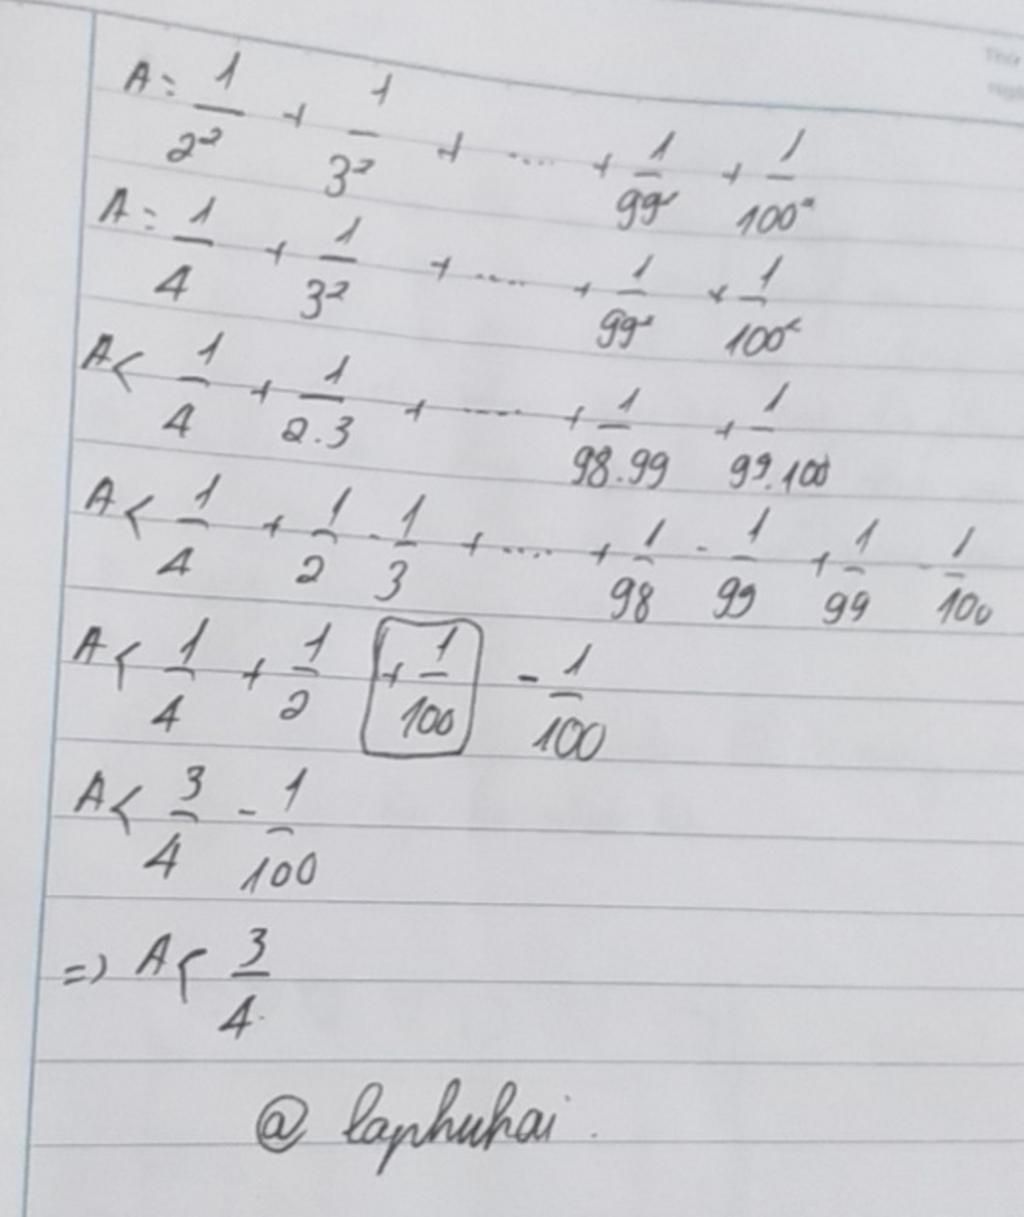 A = 1/2² + 1/3² + .... + 1/99² + 1/100²
A = 1/4 + 1/3² + ..... + 1/99² + 1/100²
A < 1/4 + 1/2.3 + ..... + 1/98.99 + 1/99.100
A < 1/4 + 1/2 - 1/3 + .... + 1/98 - 1/99 + 1/99 - 1/100
A < 1/4 + 1/2 + 1/100 - 1/100
A < 3/4 - 1/100
=> A < 3/4.
@ laphuhai.